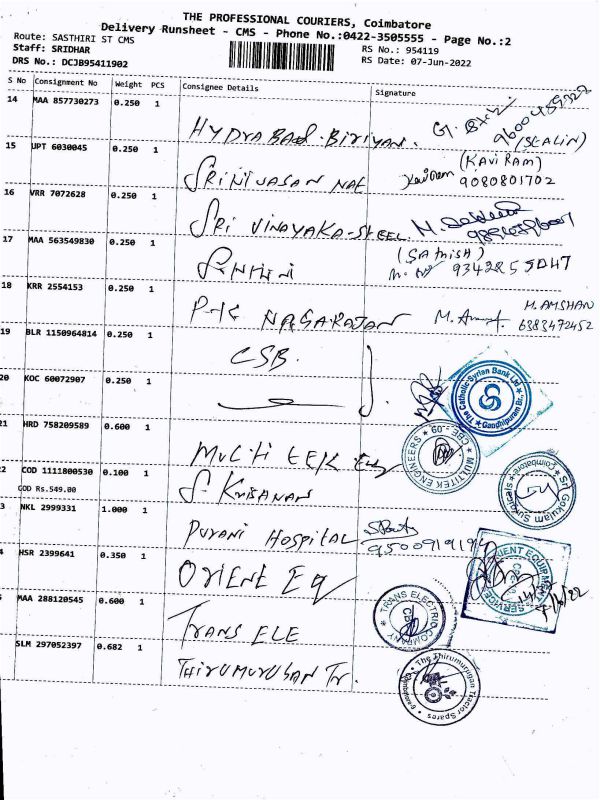 THE PROFESSIONAL COURIERS, Coimbatore
Delivery Runsheet - CMS - Phone No.:0422-3505555 - Page No.:2
Route: SASTHIRI ST CMS
Staff: SRIDHAR
DRS No.: DCJB95411902
RS No.: 954119
RS Date: 07-Jun-2022
S No Consignment No Weight PCS Consignee Details Signature
14 MAA 857730273 0.250 1
HYDRABAD BIRIYAN.
(STALIN)
15 UPT 6030045 0.250 1
SRINIVASAN NAE
Kaviram (KAVI RAM)
9080801702
16 VRR 7072628 0.250 1
SRI VINAYAKA STEEL
17 MAA 563549830 0.250 1
(SATHISH)
9342855047
18 KRR 2554153 0.250 1
P-K NAGARAJAN
M. AMSHAN
6383472452
19 BLR 1150964814 0.250 1
CSB.
20 KOC 60072907 0.250 1
The Catholic Syrian Bank Ltd
Gandhipuram Br.
21 HRD 758209589 0.600 1
MULTI TEK Eng
MULTITEK ENGINEERS
CBE -09
2 COD 1111800530 0.100 1
COD Rs.549.00
S. KRISHANAN
Sri Gokulam Surgicals
Coimbatore
3 NKL 2999331 1.000 1
PURANI HOSPITAL
4 HSR 2399641 0.350 1
ORIENT EQ
ORIENT EQUIPMENT
SERVICES
MAA 288120545 0.600 1
TRANS ELE
TRANS ELECTRIC COMPANY
SLM 297052397 0.682 1
THIRUMURUGAN Tr.
The Thirumurugan Tractor Spares